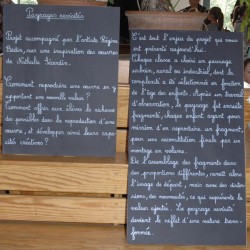 Paysages revisités
Projet accompagné par l'artiste Régine
sur une inspiration des œuvres
de Nathalie
Comment reproduire une œuvre en y
apportant une nouvelle valeur ?
Comment offrir aux élèves la richesse
des possibles dans la reproduction d'une
œuvre, et développer ainsi leurs capa-
cités créatives ?
C'est dont l'enjeu du projet qui vous
est présenté aujourd'hui.
Chaque classe a choisi un paysage
urbain, rural ou industriel, dont la
complexité a été sélectionnée en fonction
de l'âge des enfants. Après un temps
d'observation, le paysage fut ensuite
fragmenté, chaque enfant ayant pour
mission d'en reproduire un fragment,
pour une reconstitution finale par un
montage en volume.
De l'assemblage des fragments dans
des proportions différentes, renaît alors
l'image de départ, mais avec des distor-
sions, des nouveautés, ce qui représente
la valeur ajoutée. Le paysage revisité
devient le reflet d'une nature trans-
formée.